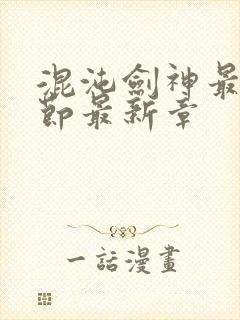 混沌劍神最
節最新章
一話漫畫